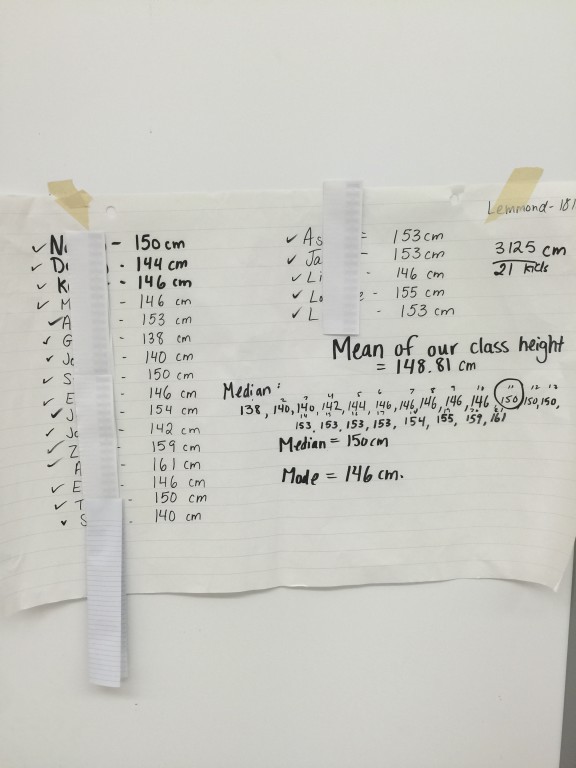 Lemmond - 181
✓ N - 150 cm
✓ D - 144 cm
✓ K - 146 cm
✓ M - 146 cm
✓ A - 153 cm
✓ G - 138 cm
✓ Je - 140 cm
✓ S - 150 cm
✓ E - 146 cm
✓ J - 154 cm
✓ Jo - 142 cm
✓ Z - 159 cm
✓ A - 161 cm
✓ E - 146 cm
✓ T - 150 cm
✓ S - 140 cm
✓ As = 153 cm
✓ Ja - 153 cm
✓ Li - 146 cm
✓ Lo e - 155 cm
✓ L - 153 cm
3125 cm
21 kids
Mean of our class height
= 148.81 cm
Median:
1 2 3 4 5 6 7 8 9 10 11 12 13
138, 140, 140, 142, 144, 146, 146, 146, 146, 146 150 150, 150,
153, 153, 153, 153, 154, 155, 159, 161
Median = 150 cm
Mode = 146 cm.